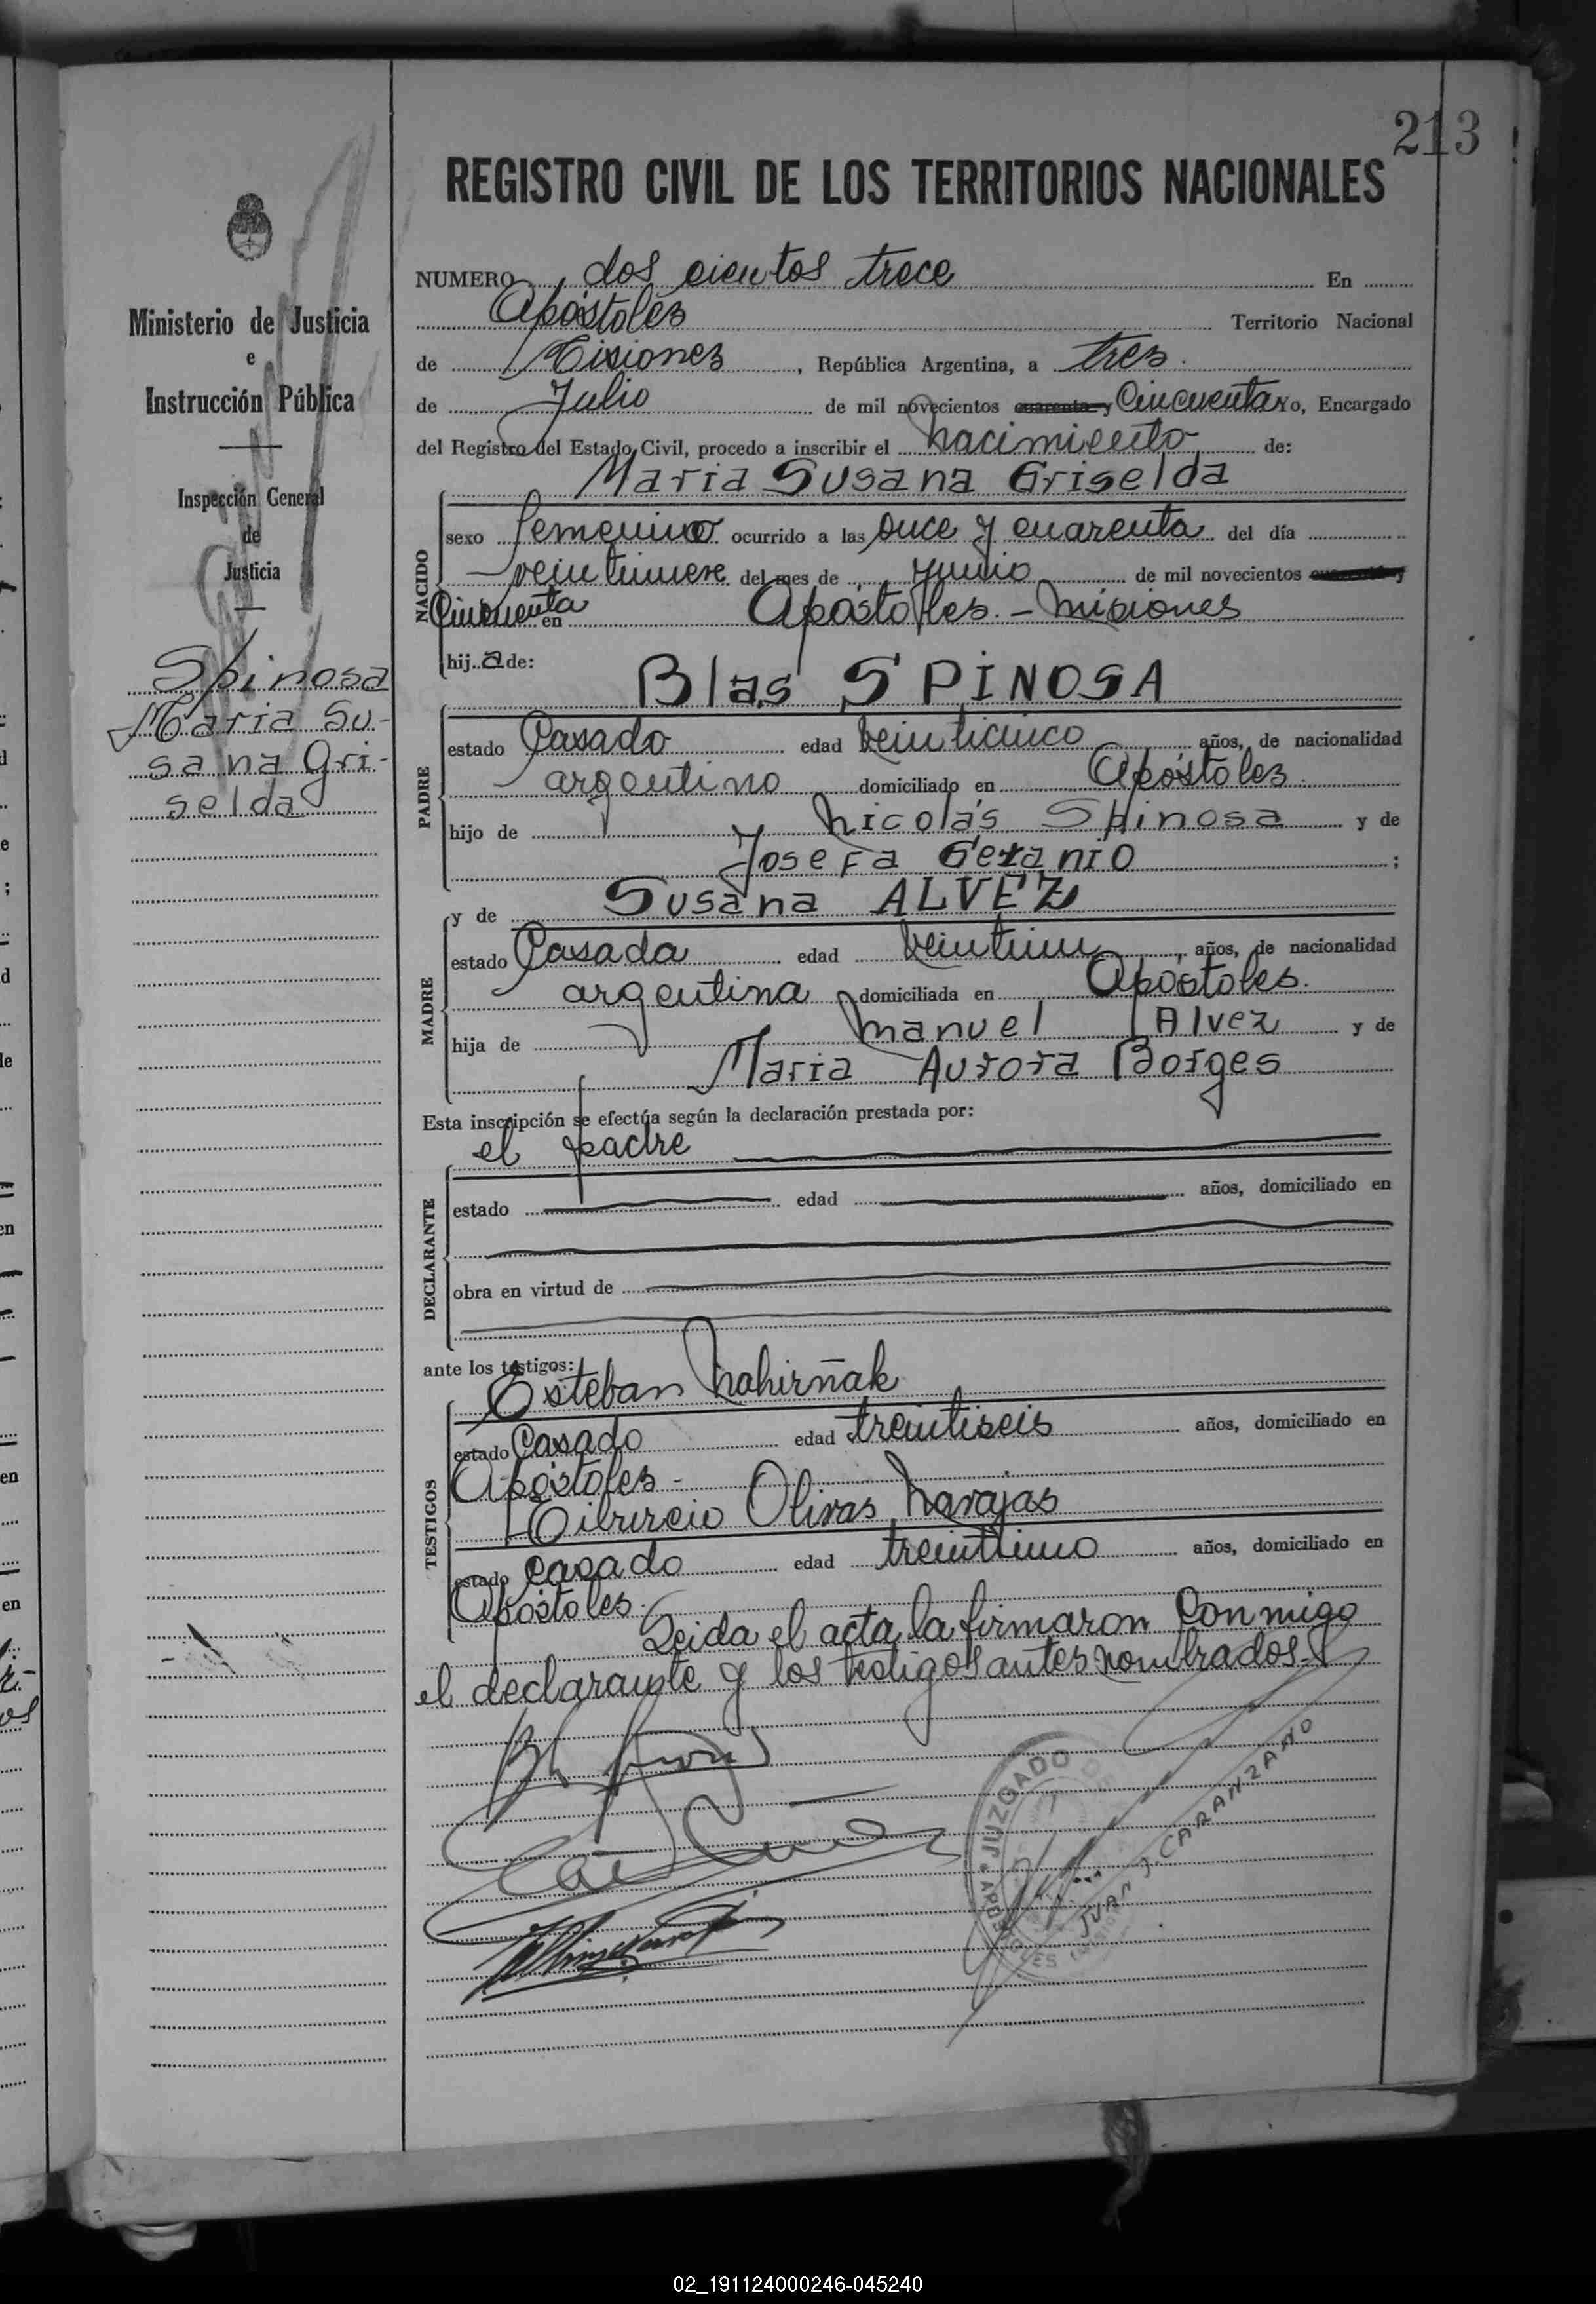 213
REGISTRO CIVIL DE LOS TERRITORIOS NACIONALES
Ministerio de Justicia
e
Instrucción Pública
Inspección General
de
Justicia
Spinosa
Maria Su-
sana Gri-
selda
NUMERO dos cientos trece En
Apóstoles Territorio Nacional
de Misiones, República Argentina, a tres
de Julio de mil novecientos cuarenta y Cincuenta Yo, Encargado
del Registro del Estado Civil, procedo a inscribir el nacimiento de:
Maria Susana Griselda
NACIDO
sexo femenino ocurrido a las once y cuarenta del día
veintinueve del mes de Junio de mil novecientos cuarenta y
Cincuenta en Apóstoles.- Misiones
hija de:
Blas SPINOSA
PADRE
estado Casado edad veinticinco años, de nacionalidad
argentino domiciliado en Apóstoles.
hijo de Nicolás Spinosa y de
Josefa ;
y de Susana ALVEZ
MADRE
estado Casada edad veintiun, años, de nacionalidad
argentina domiciliada en Apóstoles.
hija de Manuel Alvez y de
Maria Aurora Borges
Esta inscripción se efectúa según la declaración prestada por:
el padre
DECLARANTE
estado edad años, domiciliado en
obra en virtud de
ante los testigos:
Esteban Nahirñak
TESTIGOS
estado Casado edad treintiseis años, domiciliado en
Apóstoles-
Olivas Navajas
estado casado edad treintiuno años, domiciliado en
Apóstoles.
Leida el acta la firmaron conmigo
el declarante y los testigos antes nombrados.-
JUZGADO DE
JUAN J. CARANZANO
02_191124000246-045240